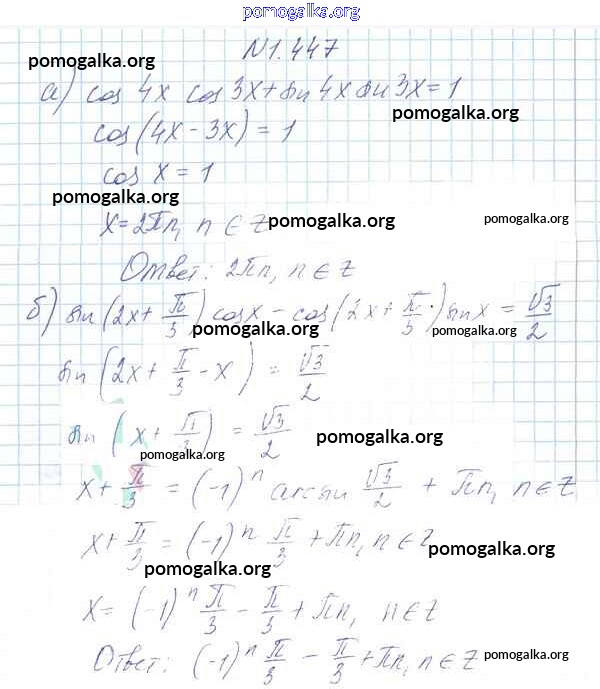 pomogalka.org
N1.447
pomogalka.org
а) cos 4x cos 3x + sin 4x sin 3x = 1
pomogalka.org
cos(4x - 3x) = 1
cos x = 1
pomogalka.org
x = 2πn, n ∈ Z
pomogalka.org
pomogalka.org
Ответ: 2πn, n ∈ Z
б) sin(2x + π/3) cos x - cos(2x + π/3) sin x = √3/2
pomogalka.org
pomogalka.org
sin(2x + π/3 - x) = √3/2
sin(x + π/3) = √3/2
pomogalka.org
pomogalka.org
x + π/3 = (-1)^n arcsin √3/2 + πn, n ∈ Z
x + π/3 = (-1)^n π/3 + πn, n ∈ Z
pomogalka.org
pomogalka.org
x = (-1)^n π/3 - π/3 + πn, n ∈ Z
Ответ: (-1)^n π/3 - π/3 + πn, n ∈ Z
pomogalka.org